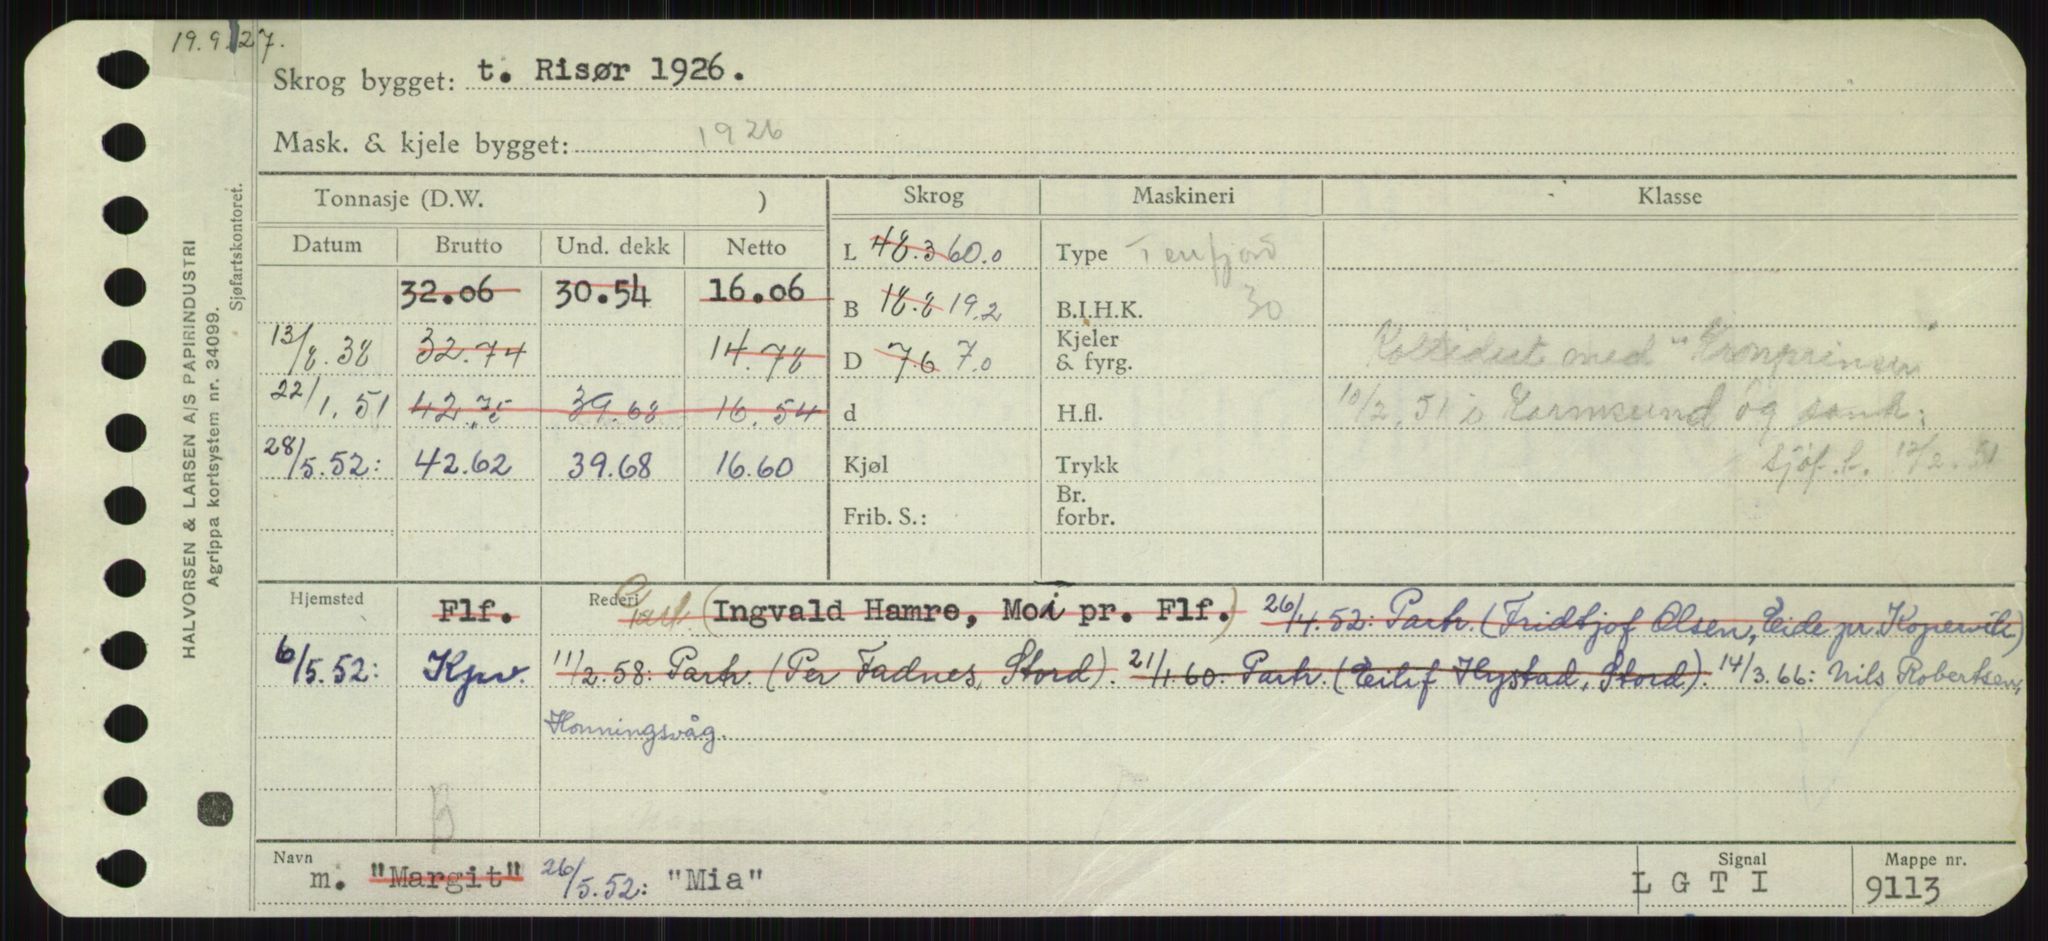 19.9.27.
Skrog bygget: t. Risør 1926.
Mask. & kjele bygget: 1926
HALVORSEN & LARSEN A/S PAPIRINDUSTRI
Agrippa kortsystem nr. 34099.
Sjøfartskontoret.
Tonnasje (D.W. ) Skrog Maskineri Klasse
Datum Brutto Und. dekk Netto
32.06 30.54 16.06
13/8.38 32.74 14.78
22/1.51 42.75 39.68 16.54
28/5.52: 42.62 39.68 16.60
L 48.3 60.0
B 18.8 19.2
D 7.6 7.0
d
Kjøl
Frib. S.:
Type Tenfjord
B.I.H.K. 30
Kjeler & fyrg.
H.fl.
Trykk
Br. forbr.
Kollidert med "Kronprinsen"
10/2.51 i Karmsund og sank.
Sjøf.t. 12/2.51
Hjemsted Flf. Rederi Part. (Ingvald Hamre, Moi pr. Flf.) 26/4.52: Partr. (Fridtjof Olsen, Eide pr. Kopervik)
6/5.52: Kpv. 11/2.58: Partr. (Per Fadnes, Stord). 21/1.60: Partr. (Eilif Hystad, Stord). 14/3.66: Nils Robertsen,
Honningsvåg.
B
Navn m. "Margit" 26/5.52: "Mia" Signal LGTI Mappe nr. 9113